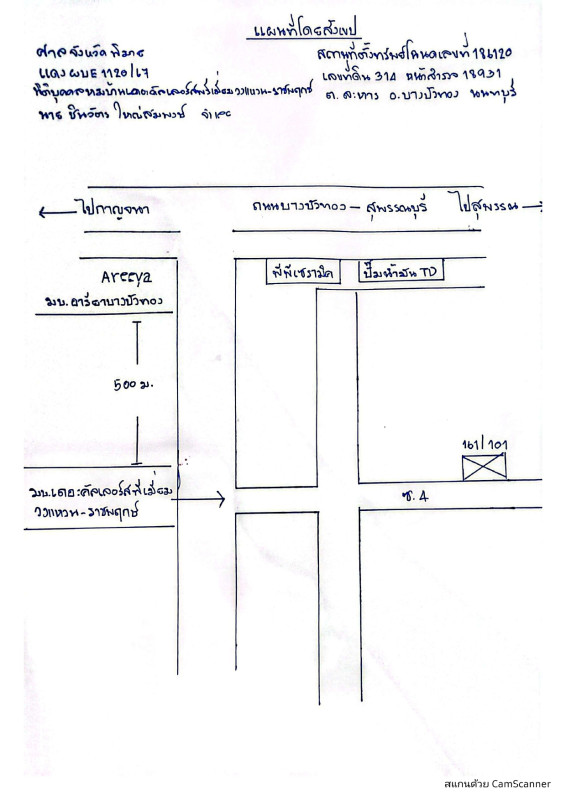 แผนที่โดยสังเขป
ศาลจังหวัด
สถานที่ตั้งทรัพย์โฉนดเลขที่ 186120
แดง ผบE 1120/67
เลขที่ดิน 314 หน้าสำรวจ 18931
นิติบุคคลหมู่บ้านเดอะคัลเลอร์สพรีเมี่ยม วงแหวน-ราชพฤกษ์
ต. ละหาร อ. บางบัวทอง นนทบุรี
นาย ชินวัตร ใหญ่สมพงษ์ จำเลย
ไปกาญจนา
ถนนบางบัวทอง - สุพรรณบุรี
ไปสุพรรณ
Areeya
มบ. อารียาบางบัวทอง
พีพีเซรามิค
ปั๊มน้ำมัน TD
500 ม.
161/101
มบ. เดอะคัลเลอร์ส พรีเมี่ยม
วงแหวน-ราชพฤกษ์
ซ. 4
สแกนด้วย CamScanner